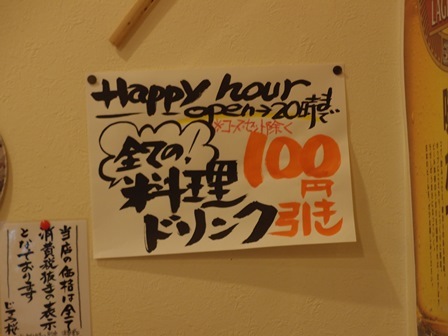 Happy hour
open→20時まで
※コース・セット除く
全ての!
料理
ドリンク
100
円
引き
当店の価格は全て
消費税抜きの表示
となっております